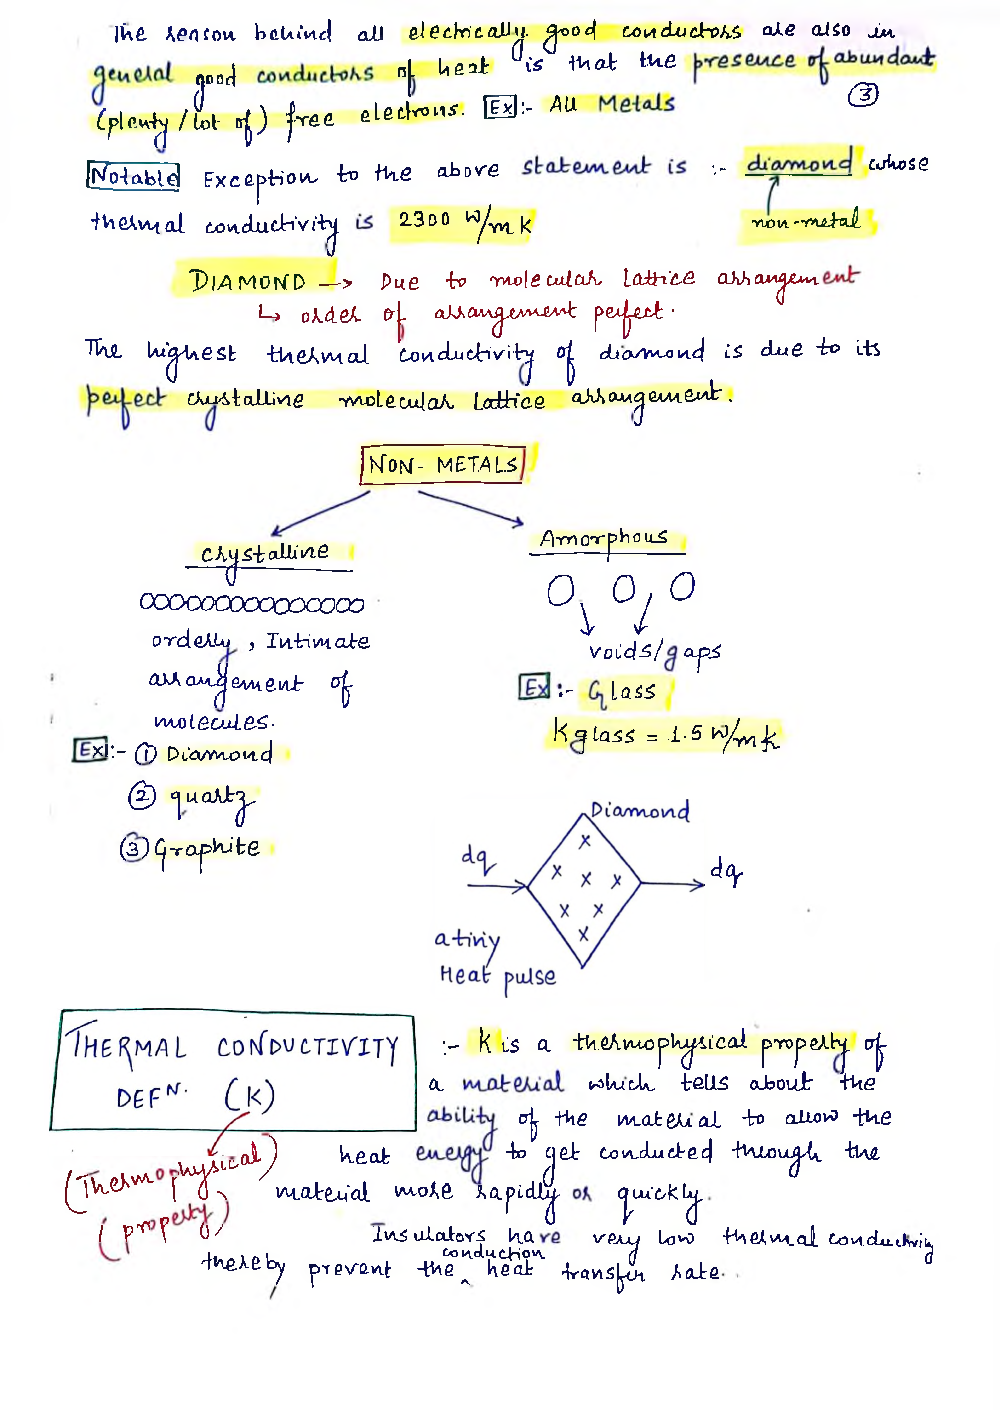 The reason behind all electrically good conductors are also in
general good conductors of heat is that the presence of abundant
(plenty / lot of) free electrons. Ex :- All Metals
3
Notable Exception to the above statement is :- diamond whose
thermal conductivity is 2300 W/mk
non-metal
DIAMOND --> Due to molecular lattice arrangement
↳ order of arrangement perfect.
The highest thermal conductivity of diamond is due to its
perfect crystalline molecular lattice arrangement.
NON-METALS
Crystalline
Amorphous
orderly, Intimate
arrangement of
molecules.
voids/gaps
Ex :- Glass
Kglass = 1.5 W/mk
Ex :- ① Diamond
② quartz
③ Graphite
Diamond
dq
dq
a tiny
Heat pulse
THERMAL CONDUCTIVITY
DEFN. (K)
(Thermophysical)
(property)
:- K is a thermophysical property of
a material which tells about the
ability of the material to allow the
heat energy to get conducted through the
material more rapidly or quickly.
Insulators have very low thermal conductivity
thereby prevent the conduction heat transfer rate.